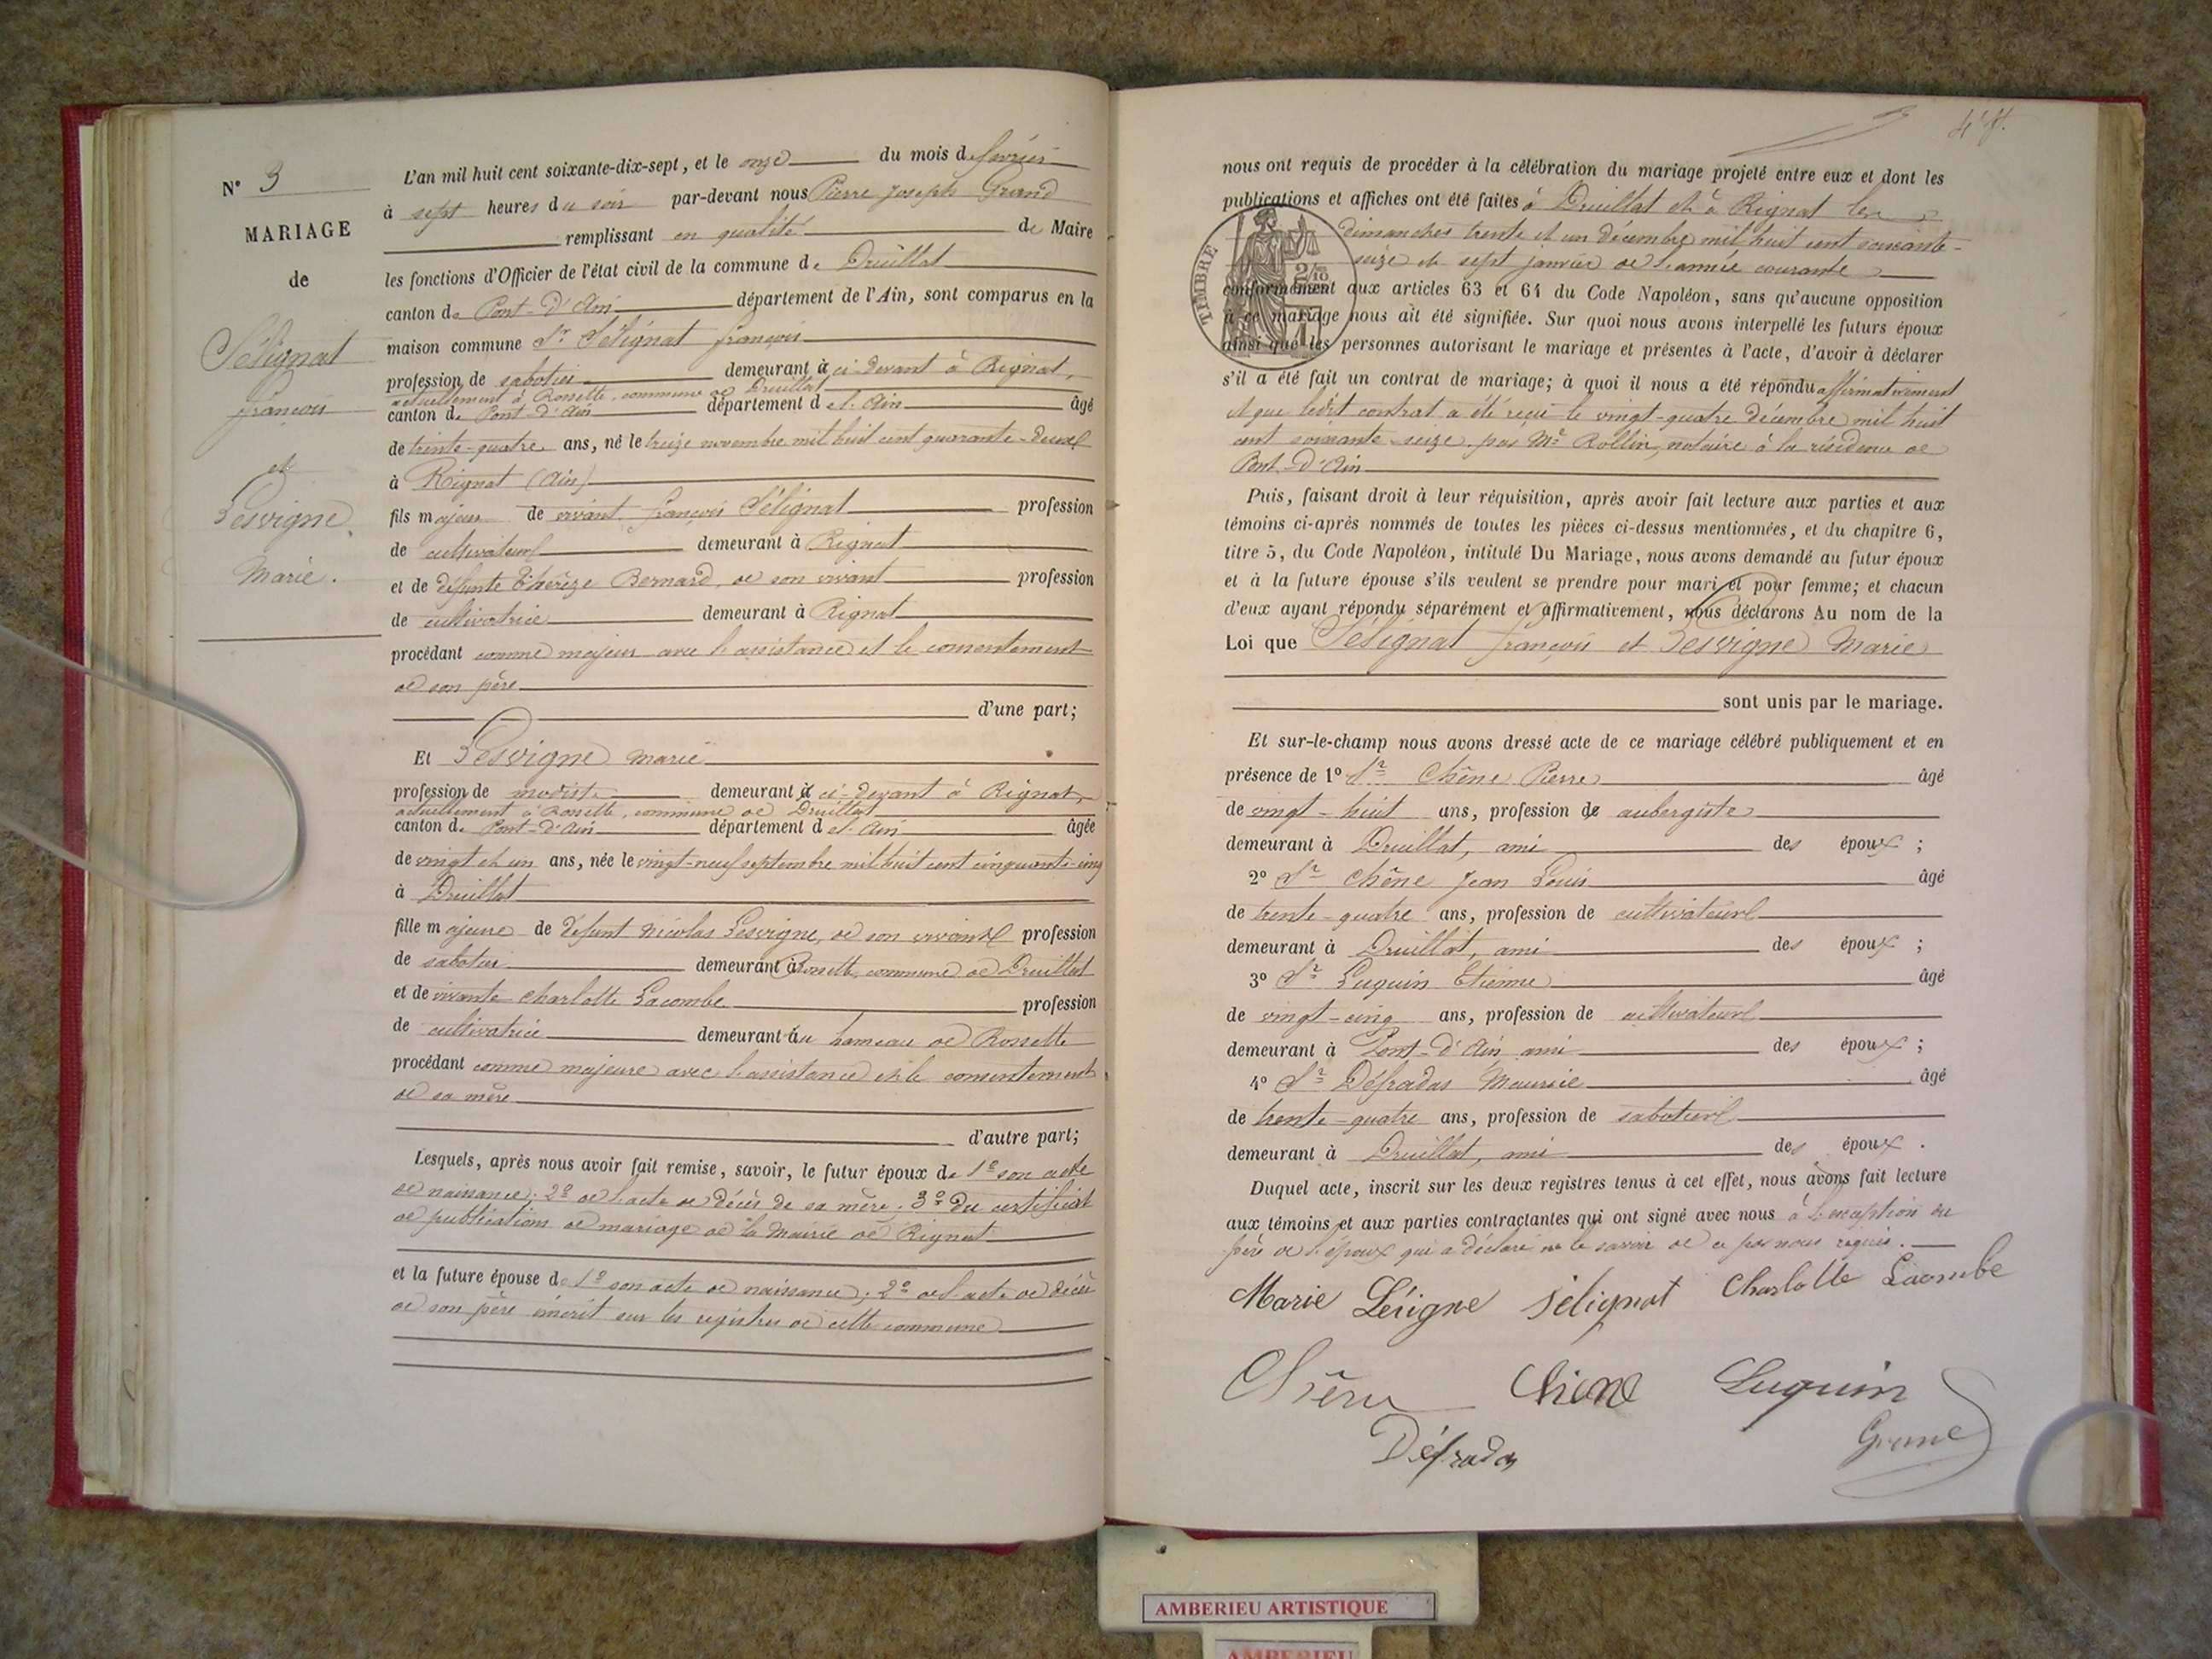 N° 3
MARIAGE
de
Sélignat
françois
et
Lesvigne
Marie.
L'an mil huit cent soixante-dix-sept, et le onze du mois de février
à sept heures du soir par-devant nous Pierre Joseph Grand
remplissant en qualité de Maire
les fonctions d'Officier de l'état civil de la commune de Druillat
canton de Pont-d'Ain département de l'Ain, sont comparus en la
maison commune Sr Sélignat françois
profession de sabotier demeurant à ci-devant à Rignat,
actuellement à Rossette, commune de Druillat
canton de Pont d'Ain département de l'Ain âgé
de trente-quatre ans, né le treize novembre mil huit cent quarante-deux
à Rignat (Ain)
fils majeur de vivant françois Sélignat profession
de cultivateur demeurant à Rignat
et de défunte Thérèze Bernard, de son vivant profession
de cultivatrice demeurant à Rignat
procédant comme majeur avec l'assistance et le consentement
de son père
d'une part;
Et Lesvigne Marie
profession de modiste demeurant à ci-devant à Rignat,
actuellement à Rossette, commune de Druillat
canton de Pont-d'Ain département de l'Ain âgée
de vingt et un ans, née le vingt-neuf septembre mil huit cent cinquante-cinq
à Druillat
fille majeure de défunt Nicolas Lesvigne, de son vivant profession
de sabotier demeurant à Rossette, commune de Druillat
et de vivante Charlotte Lacombe profession
de cultivatrice demeurant au hameau de Rossette
procédant comme majeure avec l'assistance et le consentement
de sa mère
d'autre part;
Lesquels, après nous avoir fait remise, savoir, le futur époux de 1° son acte
de naissance; 2° de l'acte de décès de sa mère; 3° du certificat
de publications de mariage de la Mairie de Rignat
et la future épouse de 1° son acte de naissance; 2° de l'acte de décès
de son père inscrit sur les registres de cette commune
nous ont requis de procéder à la célébration du mariage projeté entre eux et dont les
publications et affiches ont été faites à Druillat et à Rignat les
dimanches trente et un décembre mil huit cent soixante-
seize et sept janvier de l'année courante
TIMBRE
conformément aux articles 63 et 64 du Code Napoléon, sans qu'aucune opposition
à ce mariage nous ait été signifiée. Sur quoi nous avons interpellé les futurs époux
ainsi que les personnes autorisant le mariage et présentes à l'acte, d'avoir à déclarer
s'il a été fait un contrat de mariage; à quoi il nous a été répondu affirmativement
et que ledit contrat a été reçu le vingt-quatre décembre mil huit
cent soixante-seize par Me Rollin, notaire à la résidence de
Pont-d'Ain
Puis, faisant droit à leur réquisition, après avoir fait lecture aux parties et aux
témoins ci-après nommés de toutes les pièces ci-dessus mentionnées, et du chapitre 6,
titre 5, du Code Napoléon, intitulé Du Mariage, nous avons demandé au futur époux
et à la future épouse s'ils veulent se prendre pour mari et pour femme; et chacun
d'eux ayant répondu séparément et affirmativement, nous déclarons Au nom de la
Loi que Sélignat françois et Lesvigne Marie
sont unis par le mariage.
Et sur-le-champ nous avons dressé acte de ce mariage célébré publiquement et en
présence de 1° Sr Chêne Pierre âgé
de vingt-huit ans, profession de aubergiste
demeurant à Druillat, ami des époux;
2° Sr Chêne Jean Louis âgé
de trente-quatre ans, profession de cultivateur
demeurant à Druillat, ami des époux;
3° Sr Luquin Etienne âgé
de vingt-cinq ans, profession de cultivateur
demeurant à Pont-d'Ain ami des époux;
4° Sr Défradas Maurice âgé
de trente-quatre ans, profession de sabotier
demeurant à Druillat, ami des époux.
Duquel acte, inscrit sur les deux registres tenus à cet effet, nous avons fait lecture
aux témoins et aux parties contractantes qui ont signé avec nous à l'exception du
père de l'époux qui a déclaré ne le savoir de ce par nous requis.
Marie Lévigne Sélignat Charlotte Lacombe
Chêne Chene Luquin
Défradas Grand
AMBERIEU ARTISTIQUE
AMBERIEU